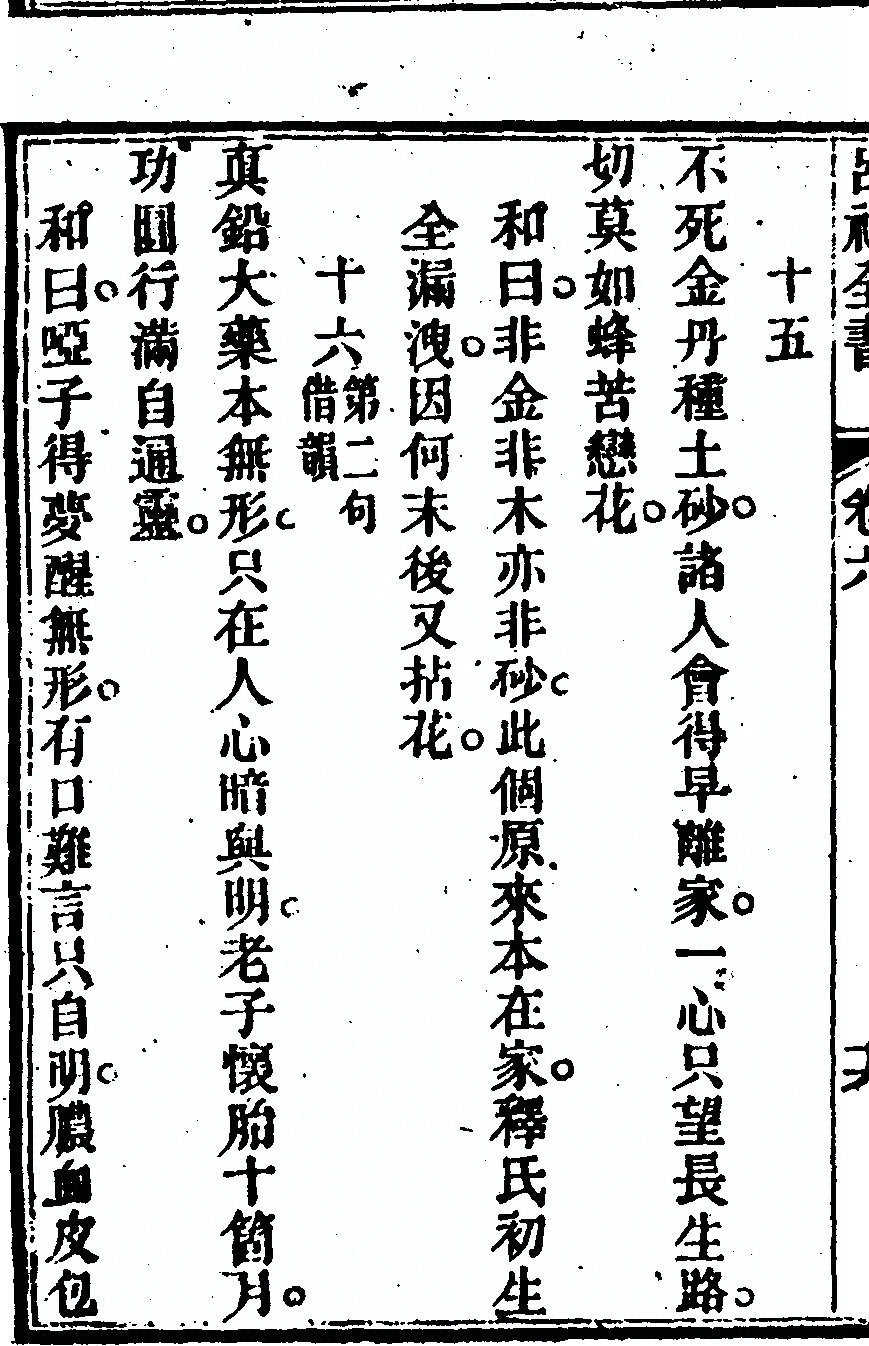 呂祖全書 卷六
十五
不死金丹種土砂。諸人會得早離家。一心只望長生路。
切莫如蜂苦戀花。
和曰。非金非木亦非砂。此個原來本在家。釋氏初生
全漏洩。因何末後又拈花。
十六第二句借韻
真鉛大藥本無形。只在人心暗與明。老子懷胎十箇月。
功圓行滿自通靈。
和曰。啞子得夢醒無形。有口難言只自明。膿血皮包